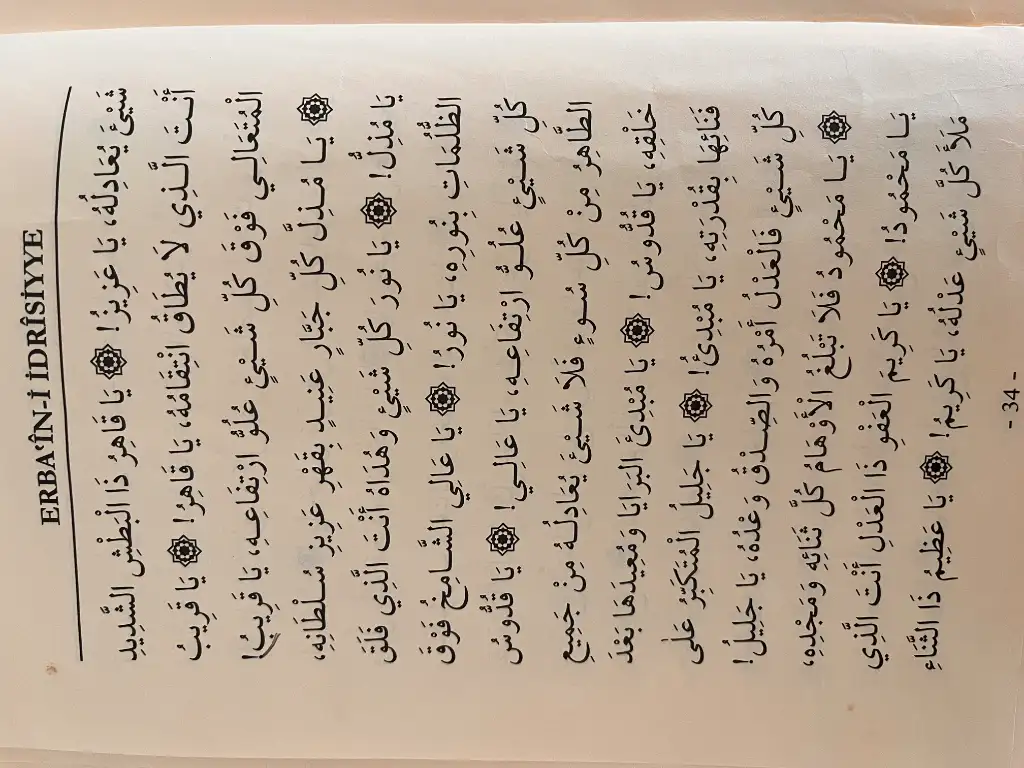 ERBA‘ÎN-İ İDRÎSİYYE
شَيْئٌ يُعَادِلُهُ، يَا عَزِيزُ! ۞ يَا قَاهِرُ ذَا الْبَطْشِ الشَّدِيدِ
أَنْتَ الَّذِي لَا يُطَاقُ انْتِقَامُهُ، يَا قَاهِرُ! ۞ يَا قَرِيبُ
الْمُتَعَالِي فَوْقَ كُلِّ شَيْئٍ عُلُوُّ ارْتِفَاعِهِ، يَا قَرِيبُ!
۞ يَا مُذِلَّ كُلِّ جَبَّارٍ عَنِيدٍ بِقَهْرِ عَزِيزِ سُلْطَانِهِ،
يَا مُذِلُّ! ۞ يَا نُورَ كُلِّ شَيْئٍ وَهُدَاهُ أَنْتَ الَّذِي فَلَقَ
الظُّلُمَاتِ بِنُورِهِ، يَا نُورُ! ۞ يَا عَالِي الشَّامِخُ فَوْقَ
كُلِّ شَيْئٍ عُلُوُّ ارْتِفَاعِهِ، يَا عَالِي! ۞ يَا قُدُّوسُ
الطَّاهِرُ مِنْ كُلِّ سُوءٍ فَلَا شَيْئَ يُعَادِلُهُ مِنْ جَمِيعِ
خَلْقِهِ، يَا قُدُّوسُ! ۞ يَا مُبْدِئَ الْبَرَايَا وَمُعِيدَهَا بَعْدَ
فَنَائِهَا بِقُدْرَتِهِ، يَا مُبْدِئُ! ۞ يَا جَلِيلُ الْمُتَكَبِّرُ عَلٰى
كُلِّ شَيْئٍ فَالْعَدْلُ أَمْرُهُ وَالصِّدْقُ وَعْدُهُ، يَا جَلِيلُ!
۞ يَا مَحْمُودُ فَلَا تَبْلُغُ الْأَوْهَامُ كُلَّ ثَنَائِهِ وَمَجْدِهِ،
يَا مَحْمُودُ! ۞ يَا كَرِيمَ الْعَفْوِ ذَا الْعَدْلِ أَنْتَ الَّذِي
مَلَأَ كُلَّ شَيْئٍ عَدْلُهُ، يَا كَرِيمُ! ۞ يَا عَظِيمُ ذَا الثَّنَاءِ
- 34 -